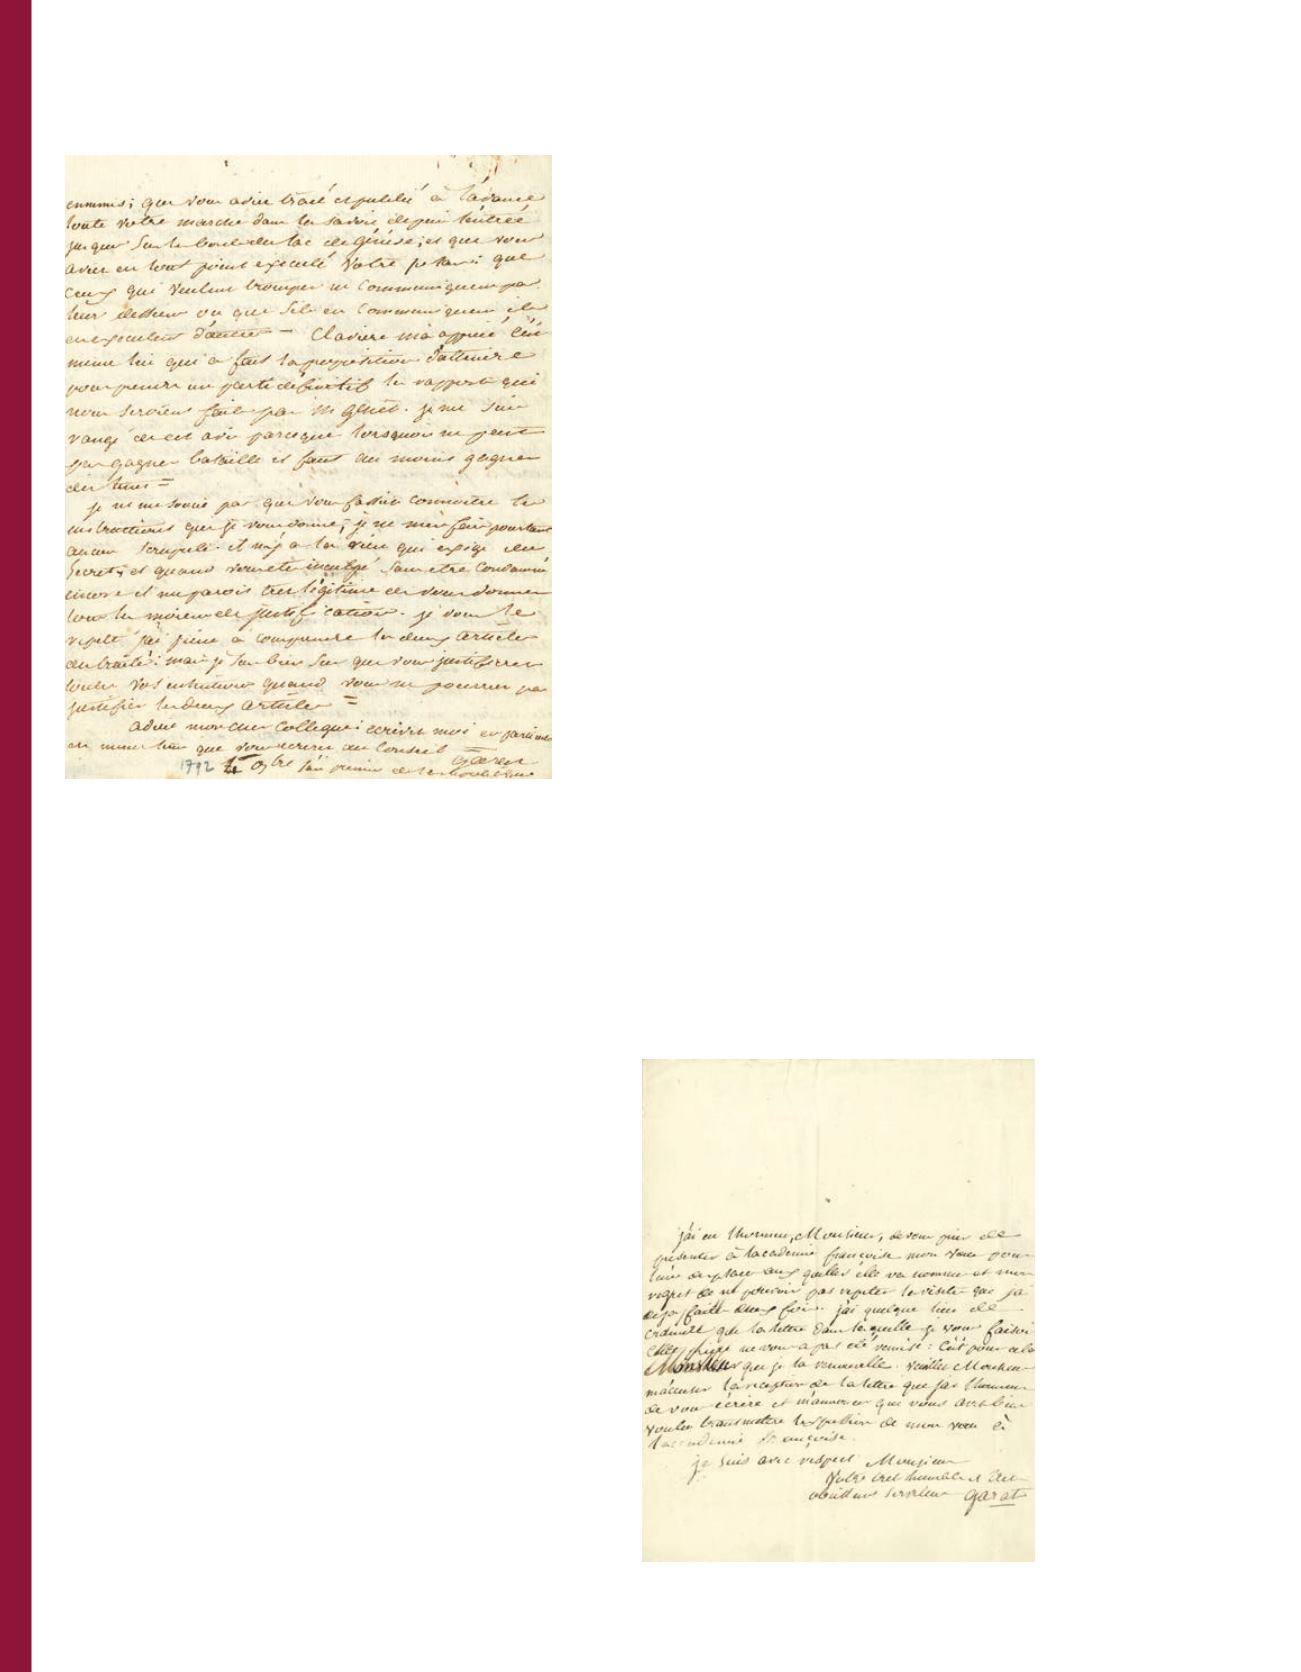 ennemis; que vous aviez tracé et publié à l'avance
toute votre marche dans la savoie depuis l'entrée
jusques sur les bords du lac de génève; et que vous
aviez en tout point executé votre plan; que
ceux qui veulent tromper ne communiquent pas
leur dessein ou que s'ils en communiquent ils
en executent d'autres = Claviere m'a appuié c'est
meme lui qui a fait la proposition d'attendre
pour prendre un parti definitif le rapport qui
nous seroient fait par m genet. je me suis
rangé de cet avis parceque lorsquon ne peut
pas gagner bataille il faut au moins gagner
du tems =
je ne me soucie pas que vous fassiez connoitre les
instructions que je vous donne; je ne m'en fais pourtant
aucun scrupule. il n'y a la rien qui exige du
secret; et quand vous etes inculpé sans etre condamné
encore il me parois tres légitime de vous donner
tous les moiens de justification. je vous le
repete j'ai peine à comprendre les deux articles
du traité: mais je suis bien sur que vous justifierez
toutes vos intentions quand vous ne pourriez pas
justifier les deux articles =
adieu mon cher collegue: ecrivez moi en particulier
en meme tems que vous ecrirez au Conseil Garat
1792 4 9bre l'an premier de la republique
j'ai eu l'honneur, Monsieur, de vous prier de
presenter à l'academie françoise mon voeu pour
l'une des places aux quelles elle va nommer et mon
regret de ne pouvoir pas repeter les visites que j'ai
deja faites deux fois. j'ai quelque lieu de
craindre que la lettre dans laquelle je vous faisois
cette priere ne vous a pas été remise: C'est pour cela
Monsieur que je la renouvelle. veuillez Monsieur
m'accuser la reception de la lettre que j'ai l'honneur
de vous écrire et m'annoncer que vous avez bien
voulu transmettre l'expression de mon voeu à
l'academie françoise.
je suis avec respect Monsieur
Votre tres humble et tres
obeissant serviteur Garat